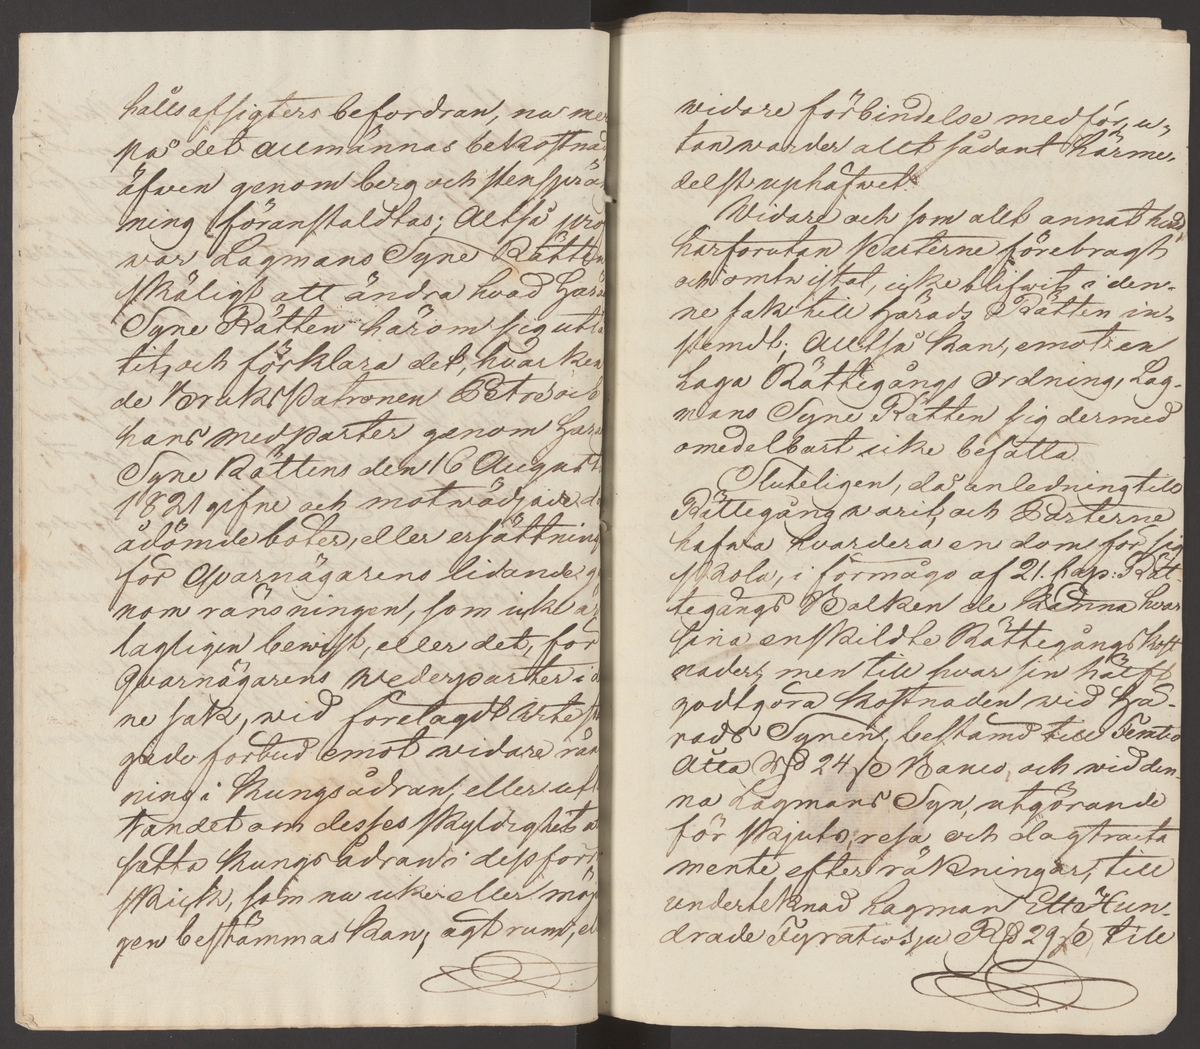 hållsafsigters befordran, nu me
på det allmännas bekostnad
äfven genom berg och stensprä
ning föranstaldtas; Altså prö
war Lagmans Syne Rätten
skäligt att ändra hvad Hära
Syne Rätten härom sig utlå
tit, och förklara det, hvarken
de Bruks Patronen Petré och
hans medparter genom Hära
Syne Rättens den 16 Augusti
1821 gifne och motwädjade da
ådömde böter, eller ersättning
för Qvarnägarens lidande g
nom ränsningen, som icke är
lagligen bewist, eller det, för
Qvarnägarens wederparter i d
ne sak, wid förelagdt wite
gade förbud emot widare rän
ning i Kungsådran, eller utl
tandet om desses skyldighet a
sätta Kungsådran i dess förra
skick, som nu icke eller mög
gen bestämmas kan, ägt rum, el
widare förbindelse medför, u-
tan warder allt sådant härme-
delst uphäfwet.
Widare och som allt annat hwad
härförutan Parterne förebragt
och omtwistat, icke blifwit i den-
ne sak till Härads Rätten in-
stemdt; Altså kan, emot en
laga Rättegångs Ordning, Lag-
mans Syne Rätten sig dermed
omedelbart icke befatta
Sluteligen, då anledning till
Rättegång warit, och Parterne
hafwa hvardera en dom för sig
skola, i förmågo af 21. Kap: Rät-
tegångs Balken de känna hvar
sina enskildte Rättegångskost
nader, men till hvar sin hälft
godtgöra kostnaden wid Hä-
rads Synen, bestämd till Femtio
Åtta Rd 24 s Banco, och wid den-
na Lagmans Syn, utgörande
för skjuts, resa och dagtracta
mente efter räkningar, till
undertecknad Lagman Ett Hun-
drade Fyratiosju Rd 29 s, till